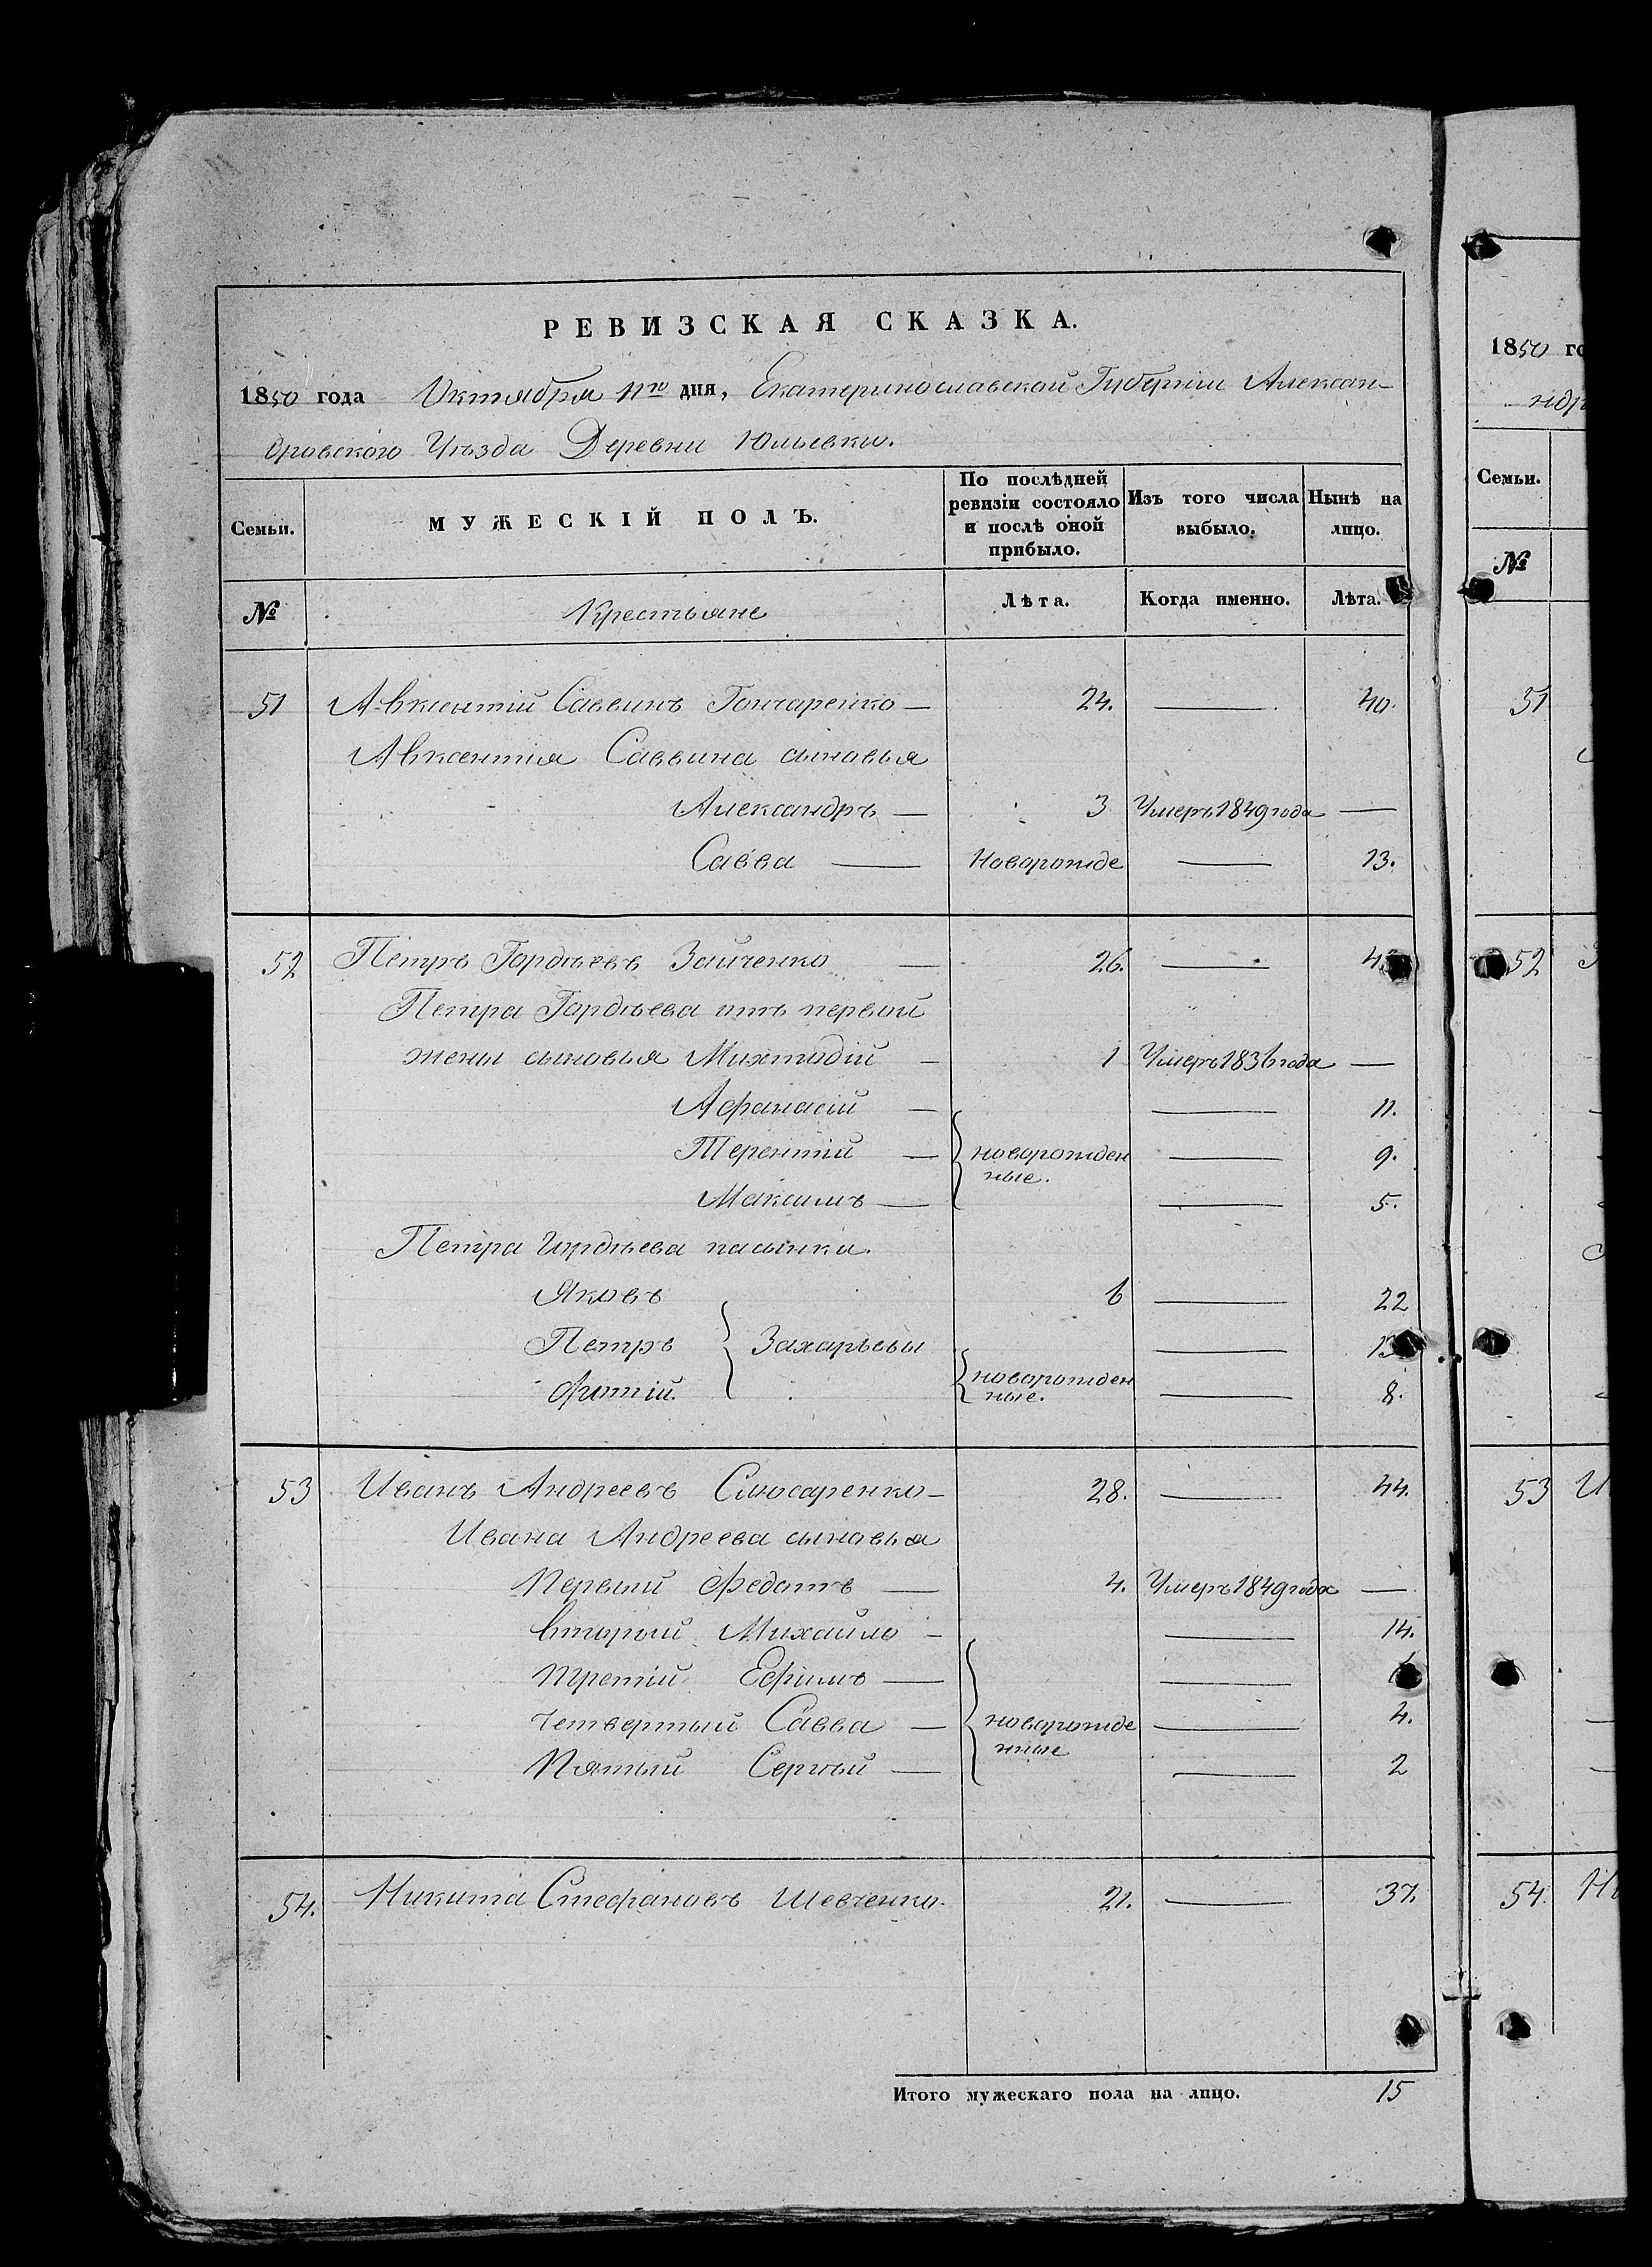 РЕВИЗСКАЯ СКАЗКА.
1850 года Октября 11го дня, Екатеринославской Губерніи Алексан-
дровского Уѣзда Деревни Юльевки.
Семьи. МУЖЕСКІЙ ПОЛЪ. По послѣдней ревизіи состояло и послѣ оной прибыло. Изъ того числа выбыло. Нынѣ на лицо.
№ Крестьяне Лѣта. Когда именно. Лѣта.
51 Авксентій Саввинъ Гончаренко — 24. — 40.
Авксентія Саввина сыновья
Александръ — 3 Умеръ 1849 года —
Савва — Новорожде — 13.
52 Петръ Гордѣевъ Зайченко — 26. —
Петра Гордѣева отъ первой
жены сыновья Михтодій — 1 Умеръ 1836 года —
Афанасій — — 11.
Терентій — новорожден — 9.
ные.
Максимъ — — 5.
Петра Гордѣева пасынки.
Яковъ 6 — 22
Петръ Захарьевы —
Фотій. новорожден — 8.
ные.
53 Иванъ Андреевъ Слюсаренко — 28. — 44.
Ивана Андреева сыновья
Первый Федотъ — 4. Умеръ 1849 года —
второй Михайло — — 14.
третій Ефимъ — —
Четвертый Савва — новорожде — 4.
нные
Пятый Сергѣй — — 2
54. Никита Стефановъ Шевченко. 21. — 37.
Итого мужескаго пола на лицо. 15
1850 го
Семьи.
№
51
52
53 И
54.